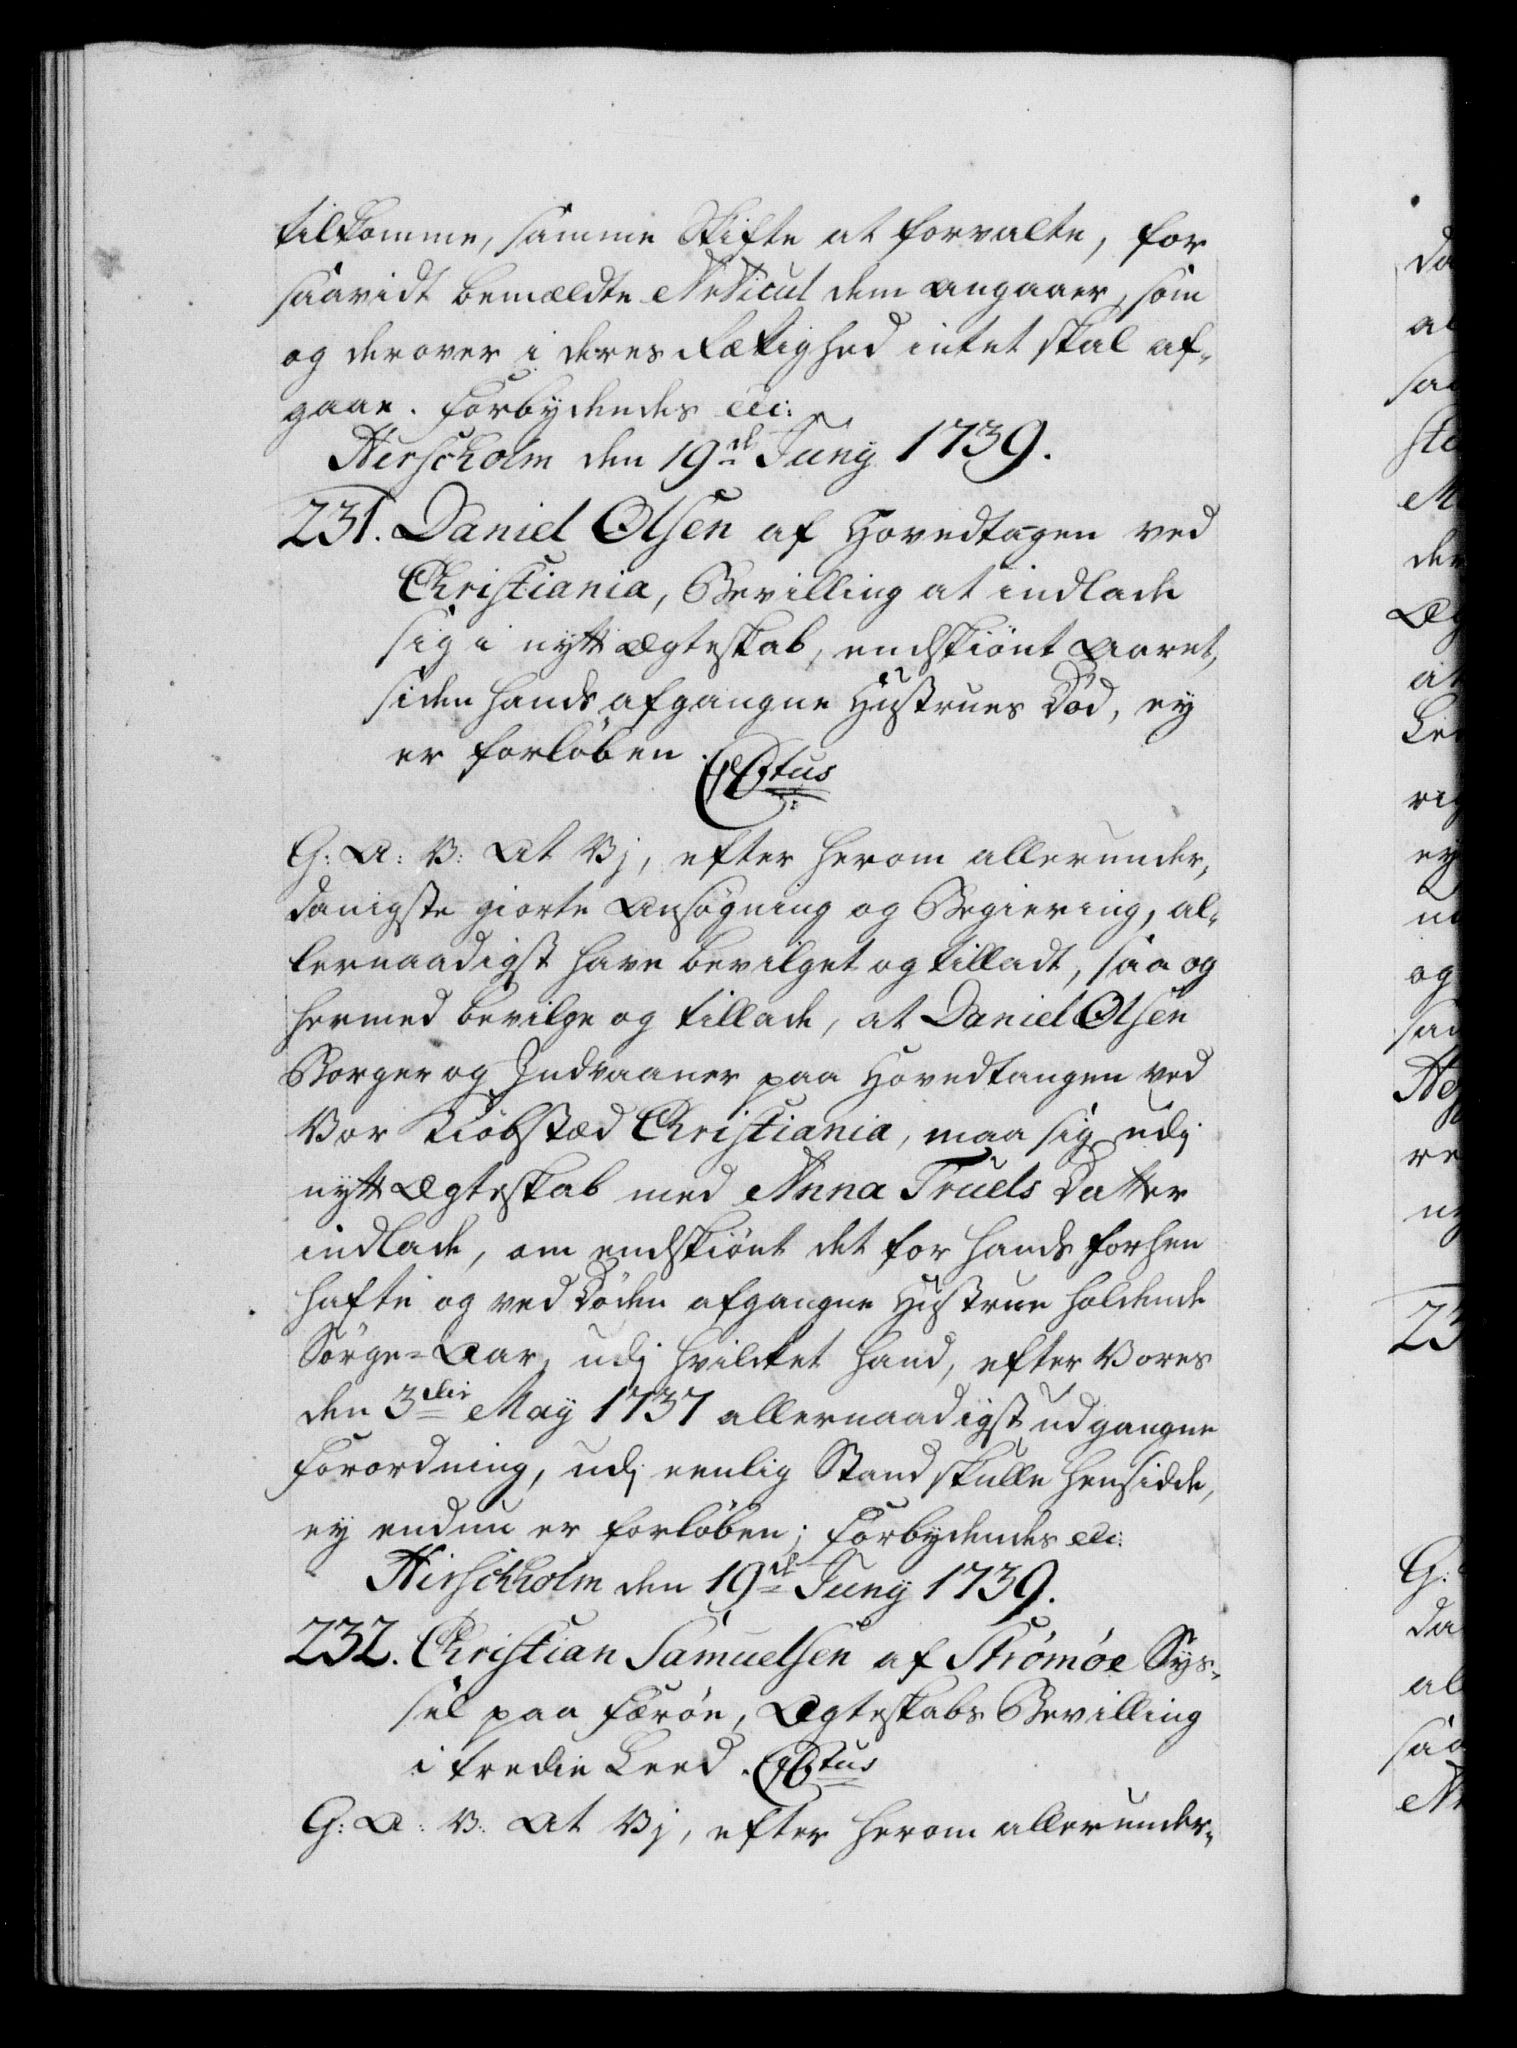 tilkomme, samme Skifte at forvalte, for
saavidt bemældte Articul dem angaaer, som
og derover i deres Rættighed intet skal af-
gaae. Forbydendes etc:
Hirschholm den 19de Juny 1739.
231. Daniel Olsen af Hovedtagen ved
Christiania, Bevilling at indlade
sig i nytt Ægteskab, endskiønt Aaret,
siden hands afgangne Hustrues Død, ey
er forløben.
G: A: V: At Vj, efter herom allerunder-
danigste giorte Ansøgning og Begiering, al-
lernaadigst have bevilget og tilladt, saa og
hermed bevilge og tillade, at Daniel Olsen
Borger og Indvaaner paa Hovedtangen ved
Vor Kiøbstæd Christiania, maa sig udj
nytt Ægteskab med Anna Truels Datter
indlade, om endskiønt det for hands forhen
hafte og ved Døden afgangne Hustrue holdende
Sørge-Aar, udj hvilcket hand, efter Vores
den 3die May 1737 allernaadigst udgangne
Forordning, udj eenlig Stand skulle hensidde,
ey endnu er forløben; Forbydendes etc:
Hirschholm den 19de Juny 1739.
232. Christian Samuelsen af Strømøe Sys-
sel paa Færøe, Ægteskabs Bevilling
i tredie Leed.
G: A: V: At Vj, efter herom allerunder-